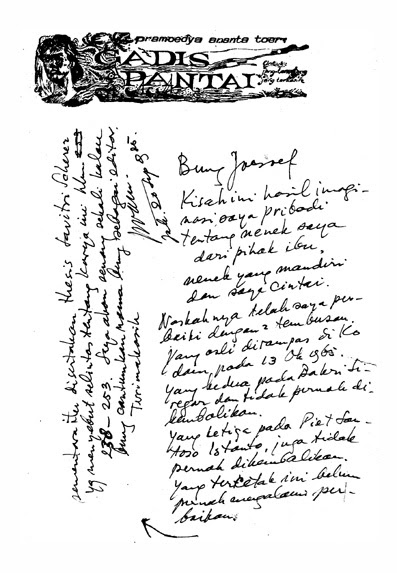 pramoedya ananta toer
GADIS
PANTAI
Bung Joessef
Kisah ini hasil imagi-
nasi saya pribadi
tentang nenek saya
dari pihak ibu,
nenek yang mandiri
dan saya cintai.
Naskahnya telah saya per-
baiki dengan 2 tembusan.
Yang asli dirampas di Ko
dam, pada 13 Ok 1965.
Yang kedua pada Bakri Si-
regar dan tidak pernah di-
kembalikan.
Yang ketiga pada Piet San-
toso Istanto, juga tidak
pernah dikembalikan.
Yang tercetak ini belum
pernah mengalami per-
baikan.
sementara itu disertakan thesis Savitri Scherer
yg menyebut selintas tentang karya ini hlm.
238 - 253. Saya akan senang sekali kalau
Bung cantumkan nama Bung sebagai editor.
Terimakasih